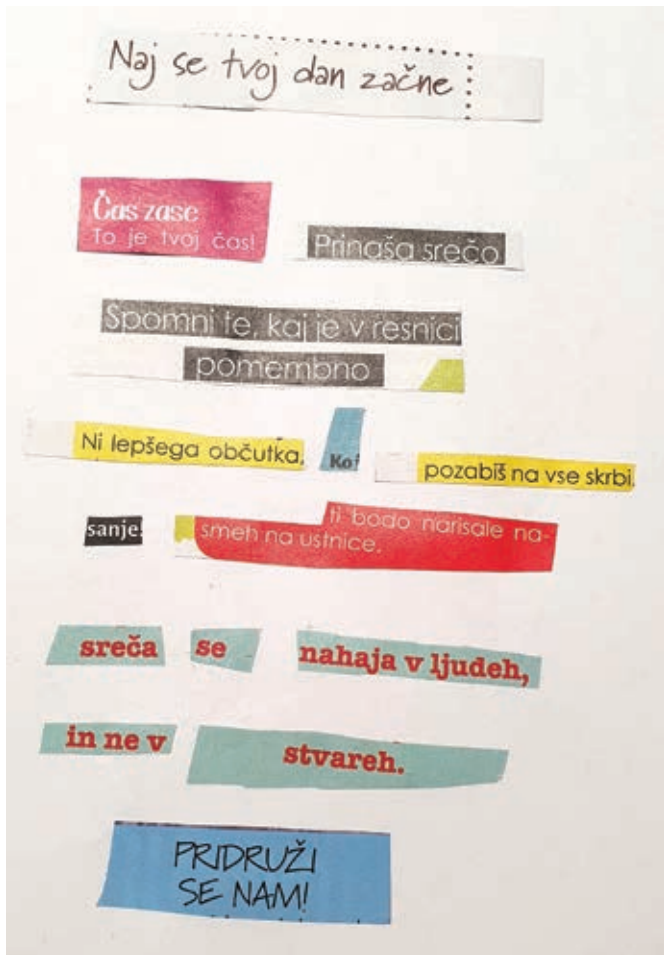 Naj se tvoj dan začne
Čas zase
To je tvoj čas!
Prinaša srečo
Spomni te, kaj je v resnici
pomembno
Ni lepšega občutka,
Ko
pozabiš na vse skrbi.
sanje
ti bodo narisale na-
smeh na ustnice.
sreča se nahaja v ljudeh,
in ne v stvareh.
PRIDRUŽI
SE NAM!